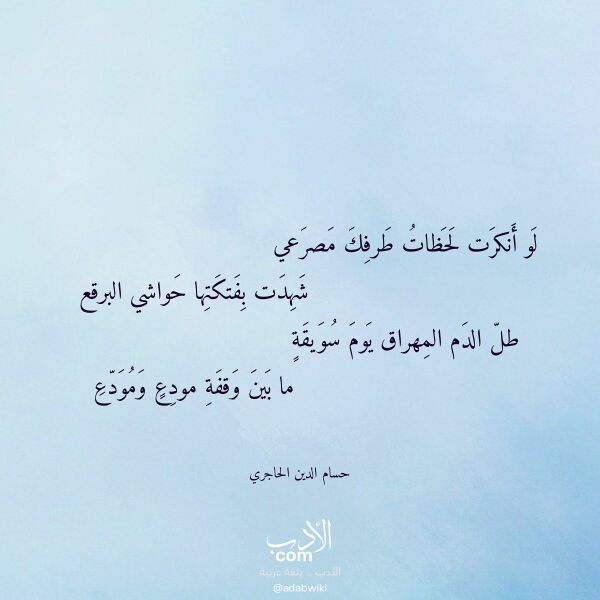 لَو أَنكرَت لَحَظاتُ طَرفِكَ مَصرَعي
شَهِدَت بِفَتكَتِها حَواشي البرقع
طلّ الدَم المِهراق يَومَ سُوَيقَةٍ
ما بَينَ وَقفَةِ مودِعٍ وَمُوَدّعِ
حسام الدين الحاجري
الأدب
com
الأدب .. بلغة عربية
@adabwiki